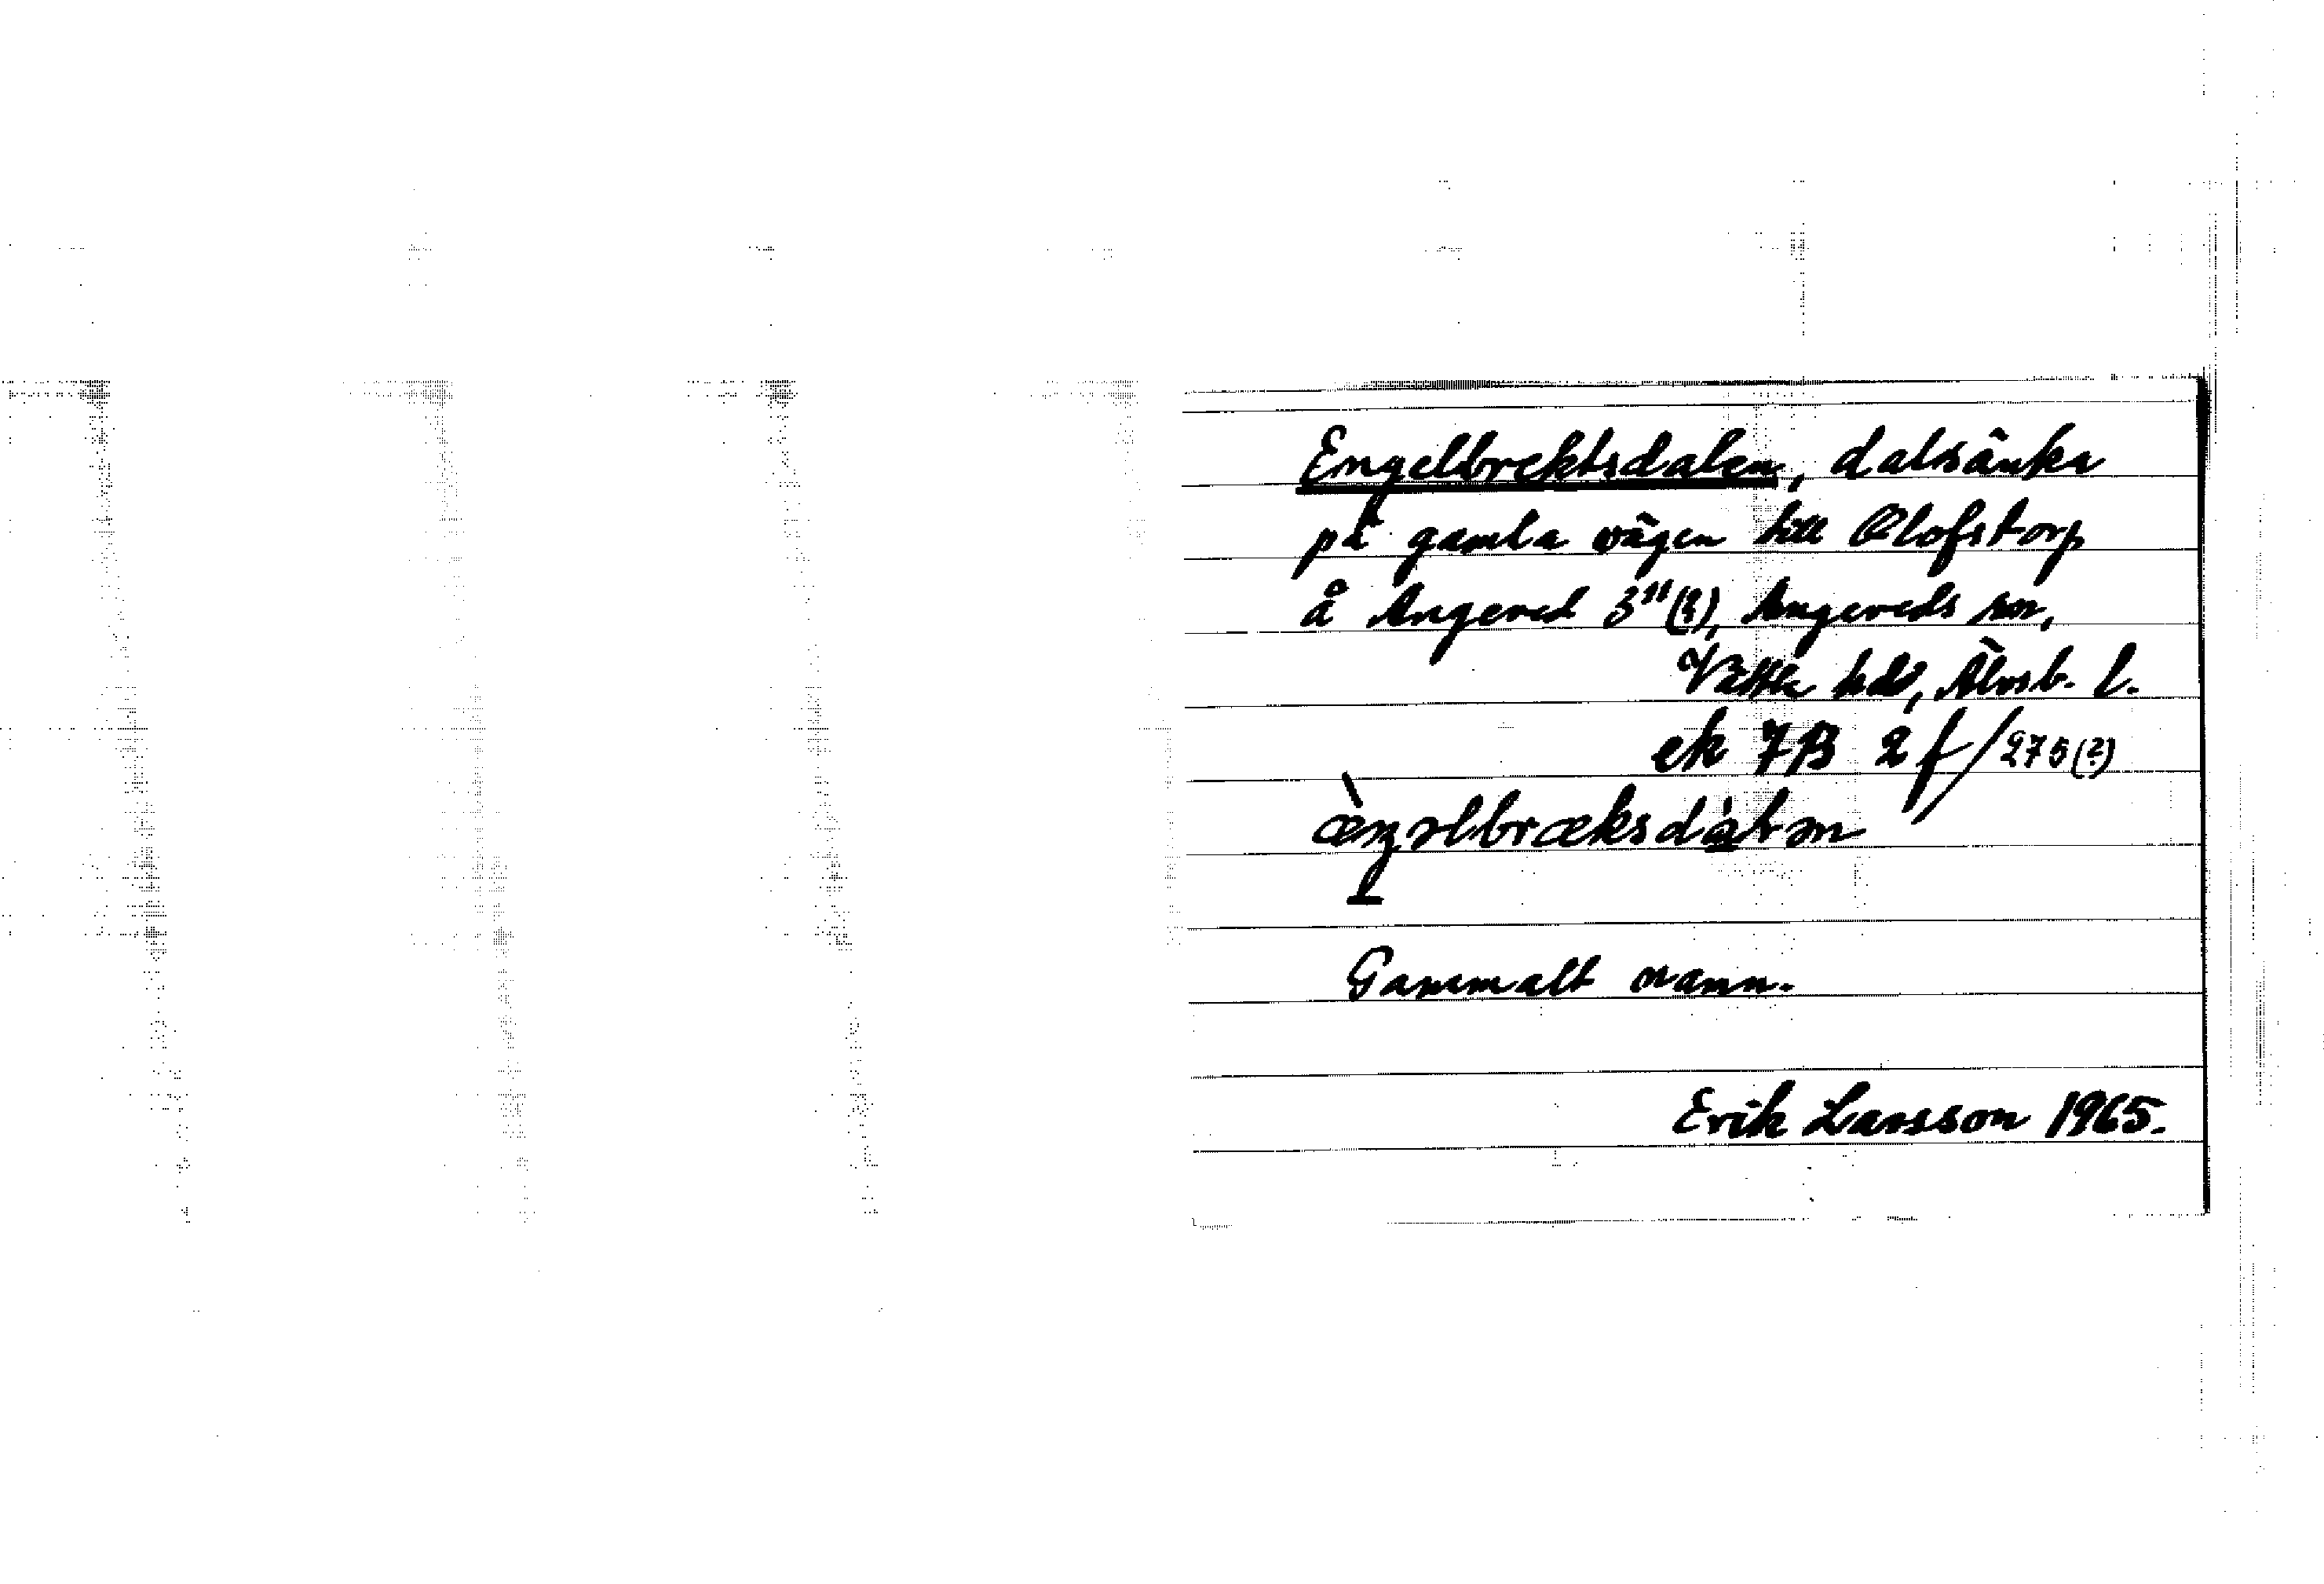 Engelbrektsdalen, dalsänka
på gamla vägen till Olofstorp
å Angered 3¹¹(?), Angereds sn,
Vättle hd, Älvsb. l.
ek 7B 2f/275(?)
Gammalt namn.
Erik Larsson 1965.